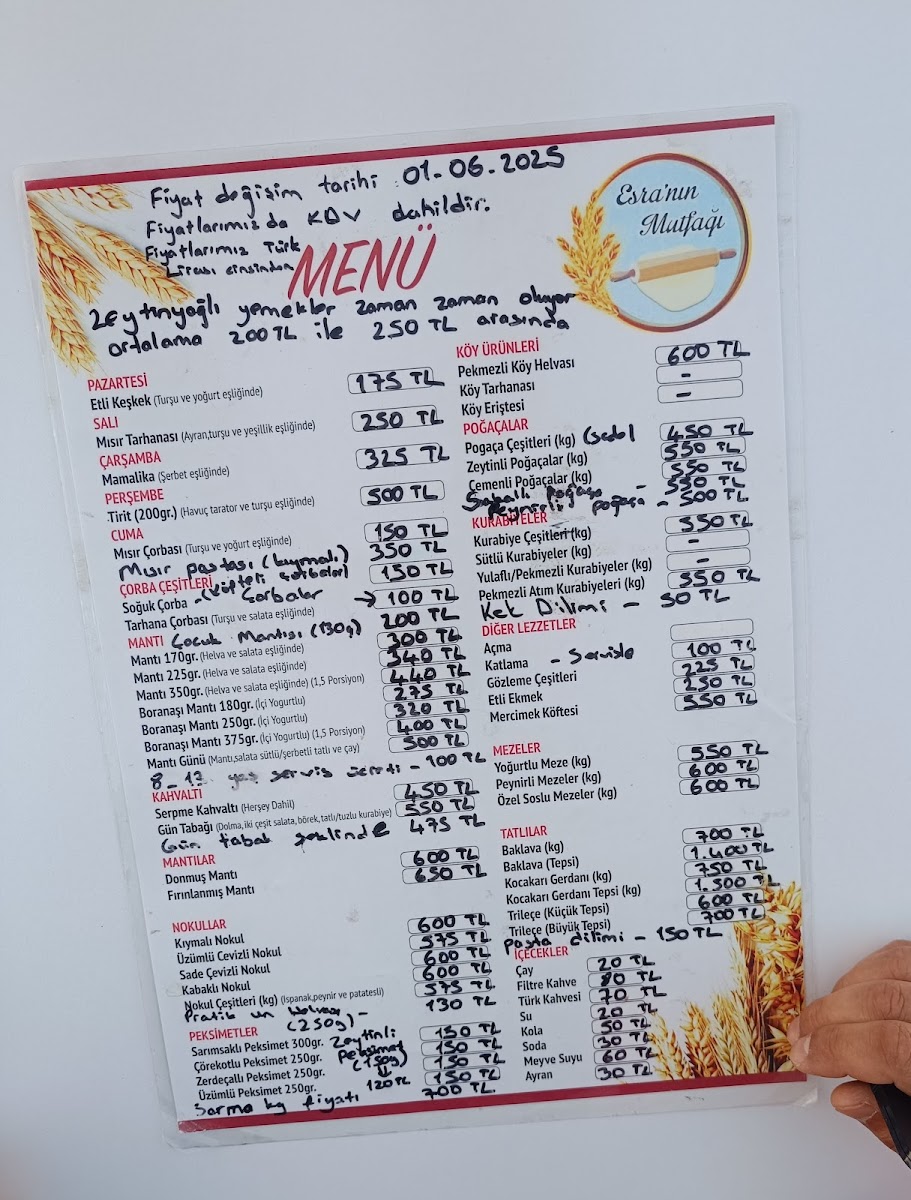 Fiyat değişim tarihi : 01.06.2025
Fiyatlarımızda KDV dahildir.
Fiyatlarımız Türk
Lirası cinsinden
MENÜ
Esra'nın
Mutfağı
Zeytinyağlı yemekler zaman zaman oluyor
ortalama 200 TL ile 250 TL arasında
PAZARTESİ
Etli Keşkek (Turşu ve yoğurt eşliğinde) 175 TL
SALI
Mısır Tarhanası (Ayran,turşu ve yeşillik eşliğinde) 250 TL
ÇARŞAMBA
Mamalika (Şerbet eşliğinde) 325 TL
PERŞEMBE
Tirit (200gr.) (Havuç tarator ve turşu eşliğinde) 500 TL
CUMA
Mısır Çorbası (Turşu ve yoğurt eşliğinde) 150 TL
Mısır pastası (kıymalı) 350 TL
ÇORBA ÇEŞİTLERİ
Soğuk Çorba - (köfteli çorbalar) 150 TL
Çorbalar → 100 TL
Tarhana Çorbası (Turşu ve salata eşliğinde)
MANTI Çocuk Mantısı (130g) 200 TL
Mantı 170gr. (Helva ve salata eşliğinde) 300 TL
Mantı 225gr. (Helva ve salata eşliğinde) 340 TL
Mantı 350gr. (Helva ve salata eşliğinde) (1,5 Porsiyon) 440 TL
Boranaşı Mantı 180gr. (İçi Yogurtlu) 275 TL
Boranaşı Mantı 250gr. (İçi Yogurtlu) 320 TL
Boranaşı Mantı 375gr. (İçi Yogurtlu) (1,5 Porsiyon) 400 TL
Mantı Günü (Mantı,salata sütlü/şerbetli tatlı ve çay) 500 TL
8-12 yaş servis ücreti - 100 TL
KAHVALTI
Serpme Kahvaltı (Herşey Dahil) 450 TL
Gün Tabağı (Dolma, iki çeşit salata, börek, tatlı/tuzlu kurabiye) 550 TL
Gün tabak şeklinde 475 TL
MANTILAR
Donmuş Mantı 600 TL
Fırınlanmış Mantı 650 TL
NOKULLAR
Kıymalı Nokul 600 TL
Üzümlü Cevizli Nokul 575 TL
Sade Çevizli Nokul 600 TL
Kabaklı Nokul 600 TL
Nokul Çeşitleri (kg) (Ispanak,peynir ve patatesli) 575 TL
Pratik un helvası - 130 TL
(250g)
PEKSİMETLER
Sarımsaklı Peksimet 300gr. 150 TL
Çörekotlu Peksimet 250gr. 150 TL
Zerdeçallı Peksimet 250gr. 150 TL
Üzümlü Peksimet 250gr. 150 TL
Zeytinli
Peksimet
(150g)
120 TL
Sarma kg fiyatı 700 TL
KÖY ÜRÜNLERİ
Pekmezli Köy Helvası 600 TL
Köy Tarhanası -
Köy Eriştesi -
POĞAÇALAR
Pogaça Çeşitleri (kg) (sade) 450 TL
Zeytinli Poğaçalar (kg) 550 TL
Çemenli Poğaçalar (kg) 550 TL
poğaça - 550 TL
Peynirli poğaça - 500 TL
KURABİYELER
Kurabiye Çeşitleri (kg) 550 TL
Sütlü Kurabiyeler (kg) -
Yulaflı/Pekmezli Kurabiyeler (kg) -
Pekmezli Atım Kurabiyeleri (kg) 550 TL
Kek Dilimi - 50 TL
DİĞER LEZZETLER
Açma
Katlama - Servisle 100 TL
Gözleme Çeşitleri 225 TL
Etli Ekmek 250 TL
Mercimek Köftesi 550 TL
MEZELER
Yoğurtlu Meze (kg) 550 TL
Peynirli Mezeler (kg) 600 TL
Özel Soslu Mezeler (kg) 600 TL
TATLILAR
Baklava (kg) 700 TL
Baklava (Tepsi) 1.400 TL
Kocakarı Gerdanı (kg) 750 TL
Kocakarı Gerdanı Tepsi (kg) 1.500 TL
Trileçe (Küçük Tepsi) 600 TL
Trileçe (Büyük Tepsi) 700 TL
Pasta dilimi - 150 TL
İÇECEKLER
Çay 20 TL
Filtre Kahve 80 TL
Türk Kahvesi 70 TL
Su 20 TL
Kola 50 TL
Soda 30 TL
Meyve Suyu 60 TL
Ayran 30 TL